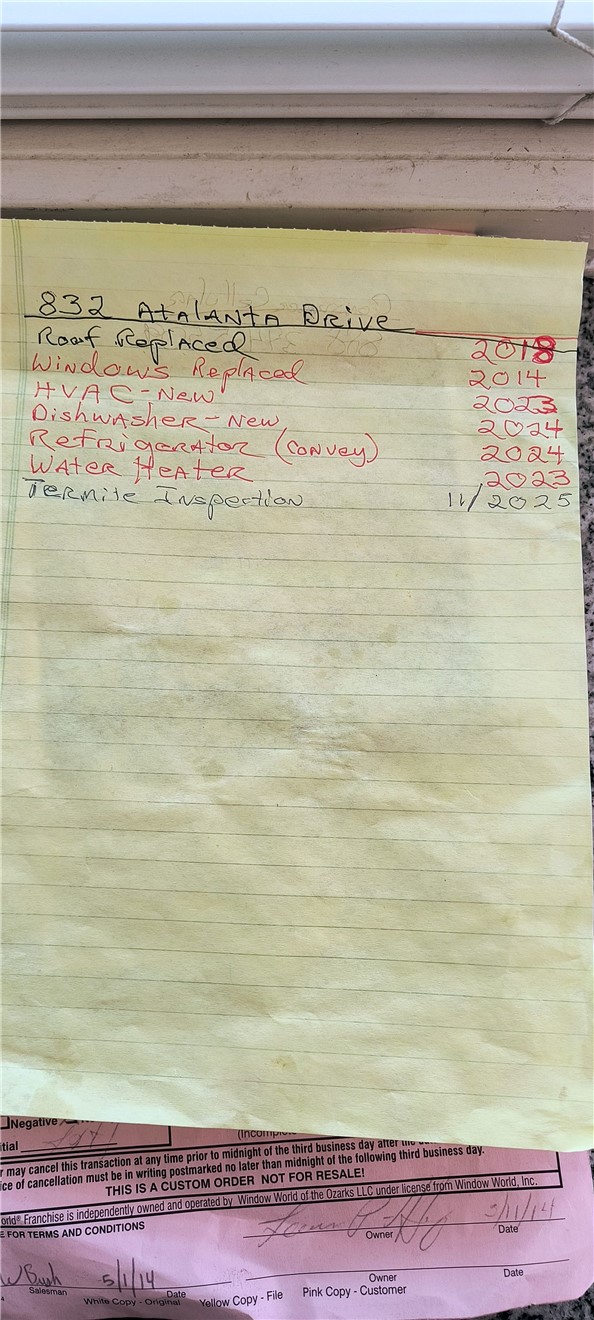 832 Atalanta Drive
Roof Replaced 2018
Windows Replaced 2014
HVAC-New 2023
Dishwasher-New 2024
Refrigerator (Convey) 2024
Water Heater 2023
Termite Inspection 11/2025
Negative
tial
r may cancel this transaction at any time prior to midnight of the third business day after the
ice of cancellation must be in writing postmarked no later than midnight of the following third business day.
THIS IS A CUSTOM ORDER NOT FOR RESALE!
orld® Franchise is independently owned and operated by Window World of the Ozarks LLC under license from Window World, Inc.
E FOR TERMS AND CONDITIONS
/11/14
Owner Date
Bush 5/1/14
Salesman Date Owner Date
White Copy - Original Yellow Copy - File Pink Copy - Customer